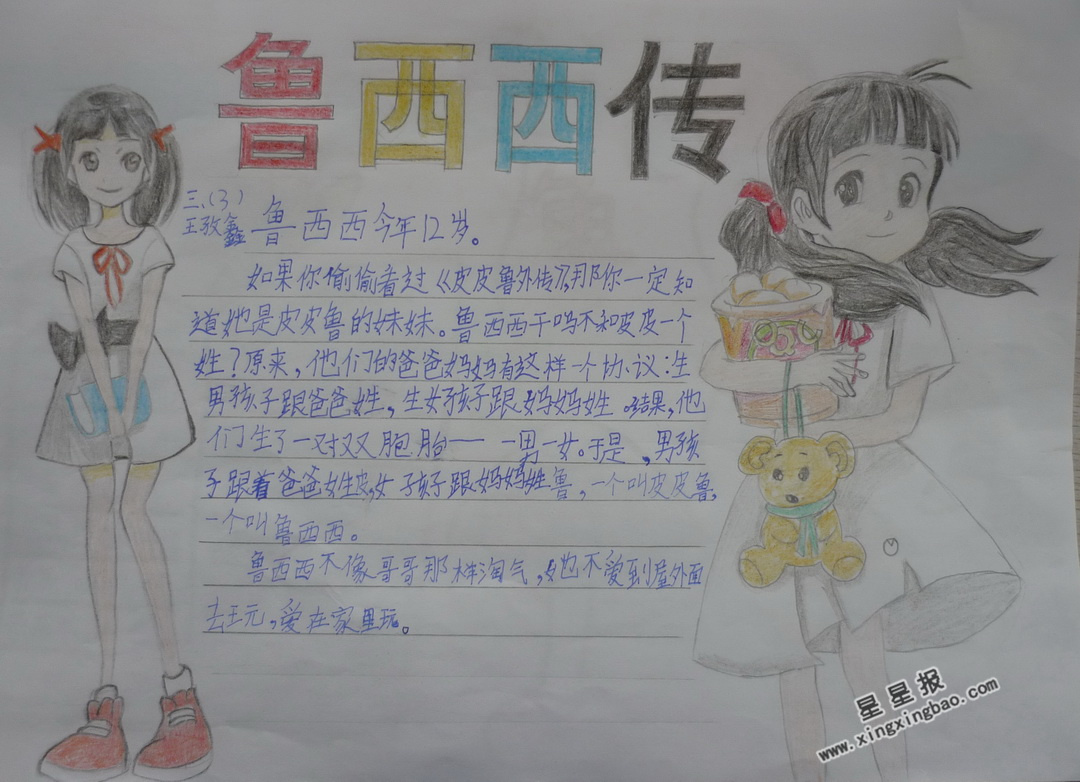 鲁西西传
三.(3)
王孜鑫
鲁西西今年12岁。
如果你偷偷看过《皮皮鲁外传》,那你一定知
道她是皮皮鲁的妹妹。鲁西西干吗不和皮皮一个
姓?原来,他们的爸爸妈妈有这样一个协议:生
男孩子跟爸爸姓,生女孩子跟妈妈姓。结果,他
们生了一对双胞胎——一男一女。于是,男孩
子跟着爸爸姓皮,女孩子跟妈妈姓鲁,一个叫皮皮鲁,
一个叫鲁西西。
鲁西西不像哥哥那样淘气,她不爱到屋外面
去玩,爱在家里玩。
星星报
www.xingxingbao.com